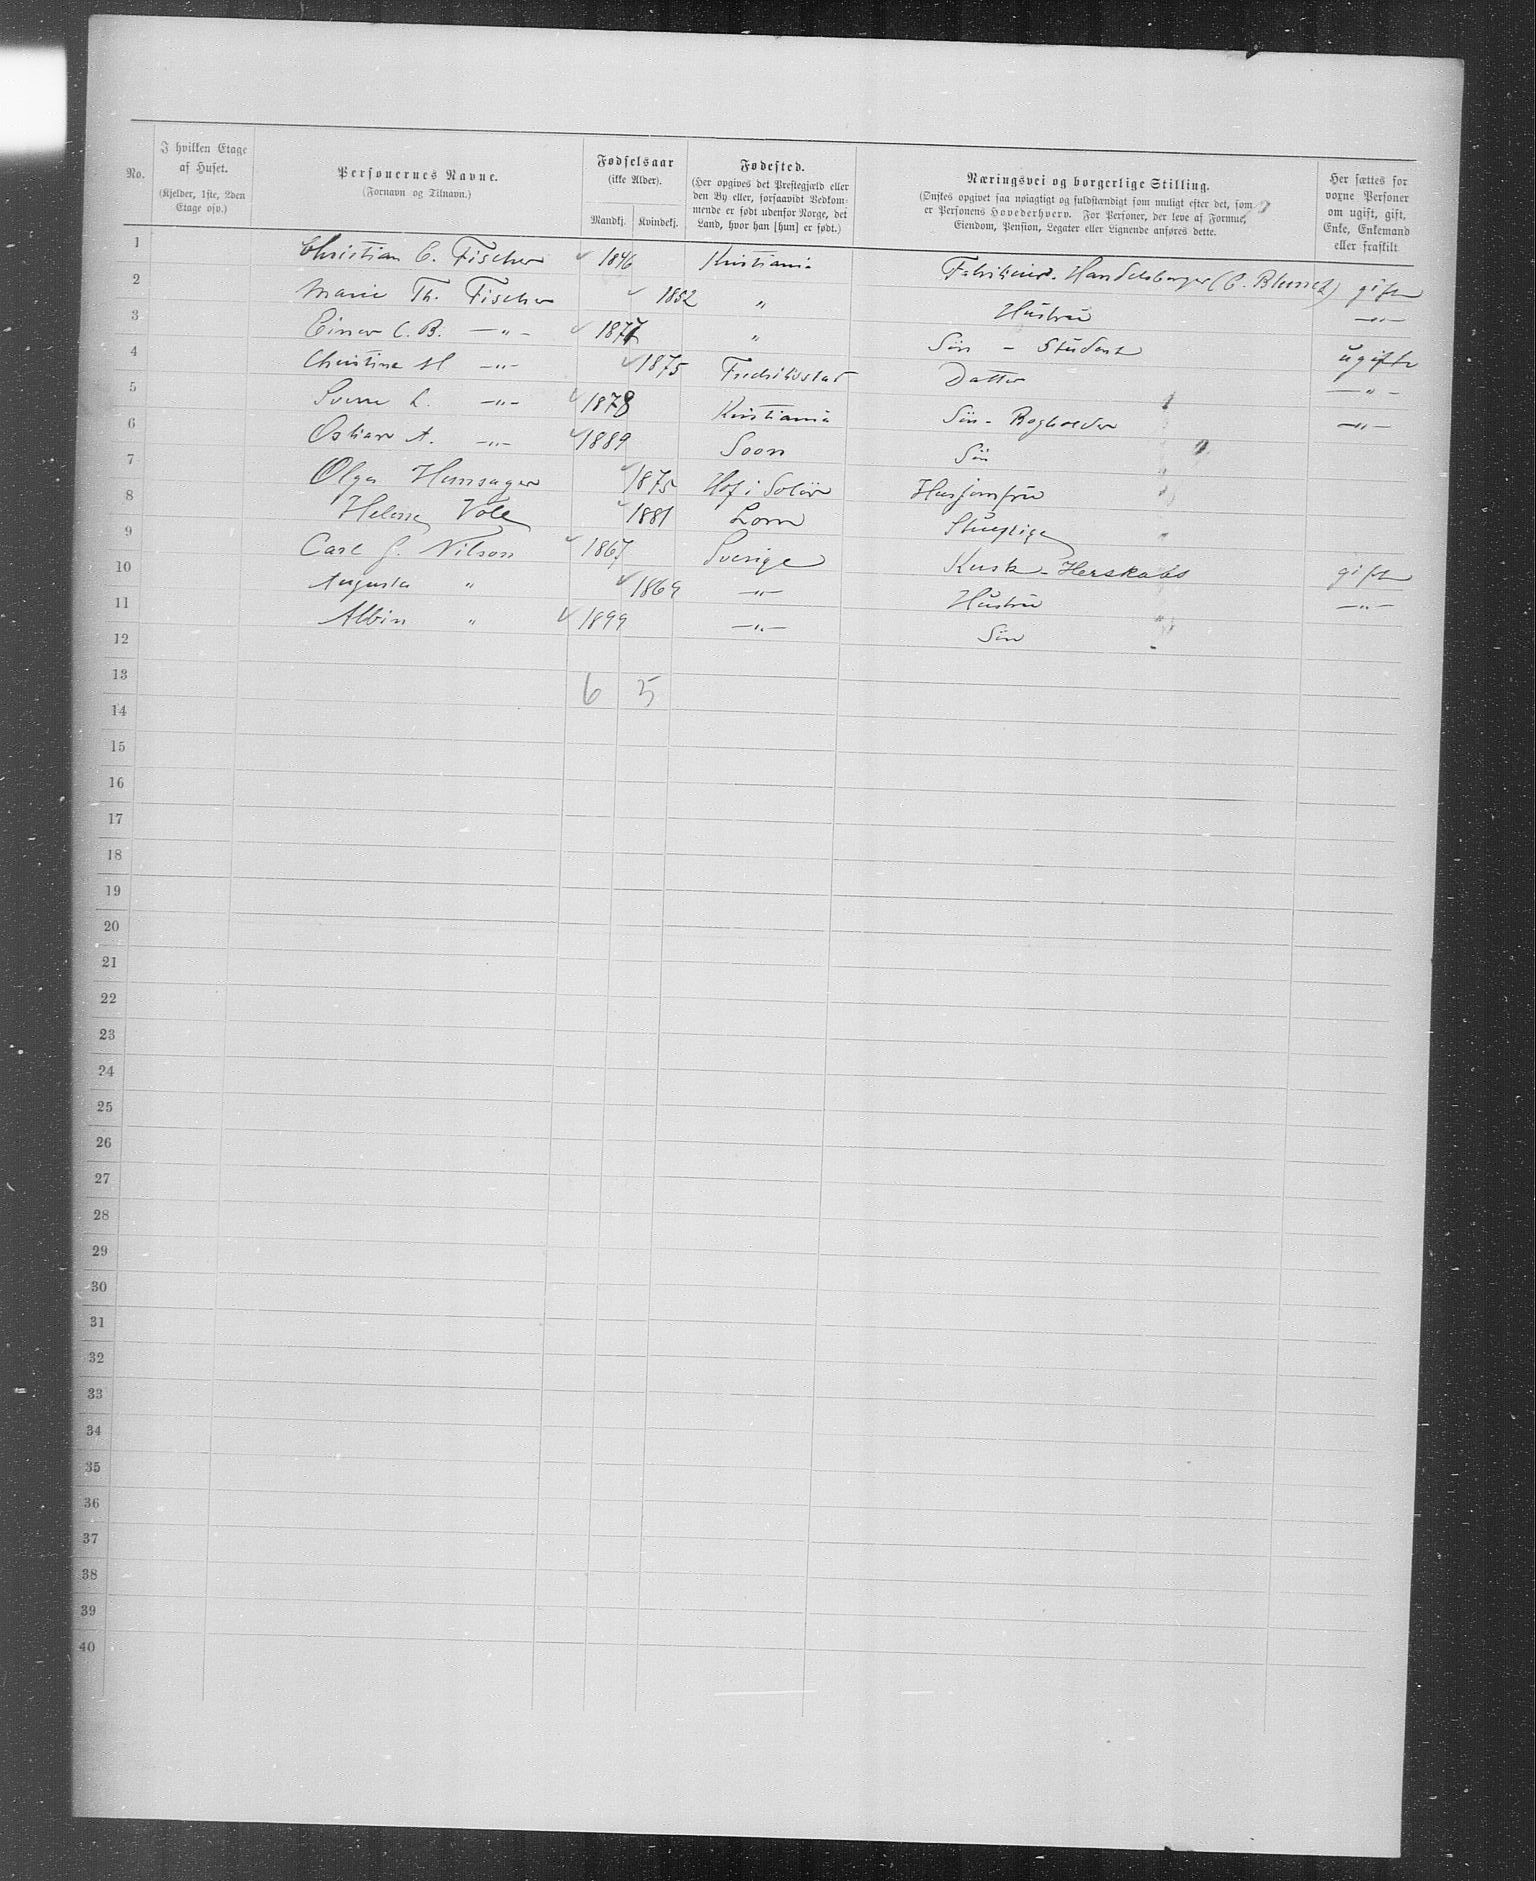 No.
I hvilken Etage
af Huset.
(Kjelder, 1ste, 2den
Etage osv.)
Personernes Navne.
(Fornavn og Tilnavn.)
Fødselsaar
(ikke Alder).
Mandkj. Kvindekj.
Fødested.
(Her opgives det Prestegjæld eller
den By eller, forsaavidt Vedkom-
mende er født udenfor Norge, det
Land, hvor han [hun] er født.)
Næringsvei og borgerlige Stilling.
(Ønskes opgivet saa nøiagtigt og fuldstændigt som muligt efter det, som
er Personens Hovederhverv. For Personer, der leve af Formue,
Eiendom, Pension, Legater eller Lignende anføres dette.
Her sættes for
voxne Personer
om ugift, gift,
Enke, Enkemand
eller fraskilt
1 Christian C. Fischer 1846 Kristiania Handelsborger gift
2 Marie Th. Fischer 1852 " Hustru —"—
3 Einar C. B. —"— 1877 " Søn - Student ugifte
4 Christine M —"— 1875 Fredrikstad Datter —"—
5 Sverre L. —"— 1878 Kristiania Søn - Bogholder —"—
6 Oskar A. —"— 1889 Soon Søn
7 Olga 1875 Hof i Solør Husjomfru
8 Helene 1881 Lom Stuepige
9 Carl G. Nilson 1867 Sverige Kusk - Herskabs gift
10 Augusta " 1869 —"— Hustru —"—
11 Albin " 1899 —"— Søn
12
13 6 5
14
15
16
17
18
19
20
21
22
23
24
25
26
27
28
29
30
31
32
33
34
35
36
37
38
39
40